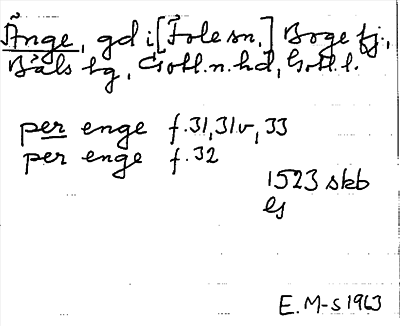 Änge, gd i [Fole sn,] Boge fj.,
Bäls tg, Gotl. n. hd, Gotl. l.
per enge f. 31, 31v, 33
per enge f. 32
1523 skb
E. M-s 1963